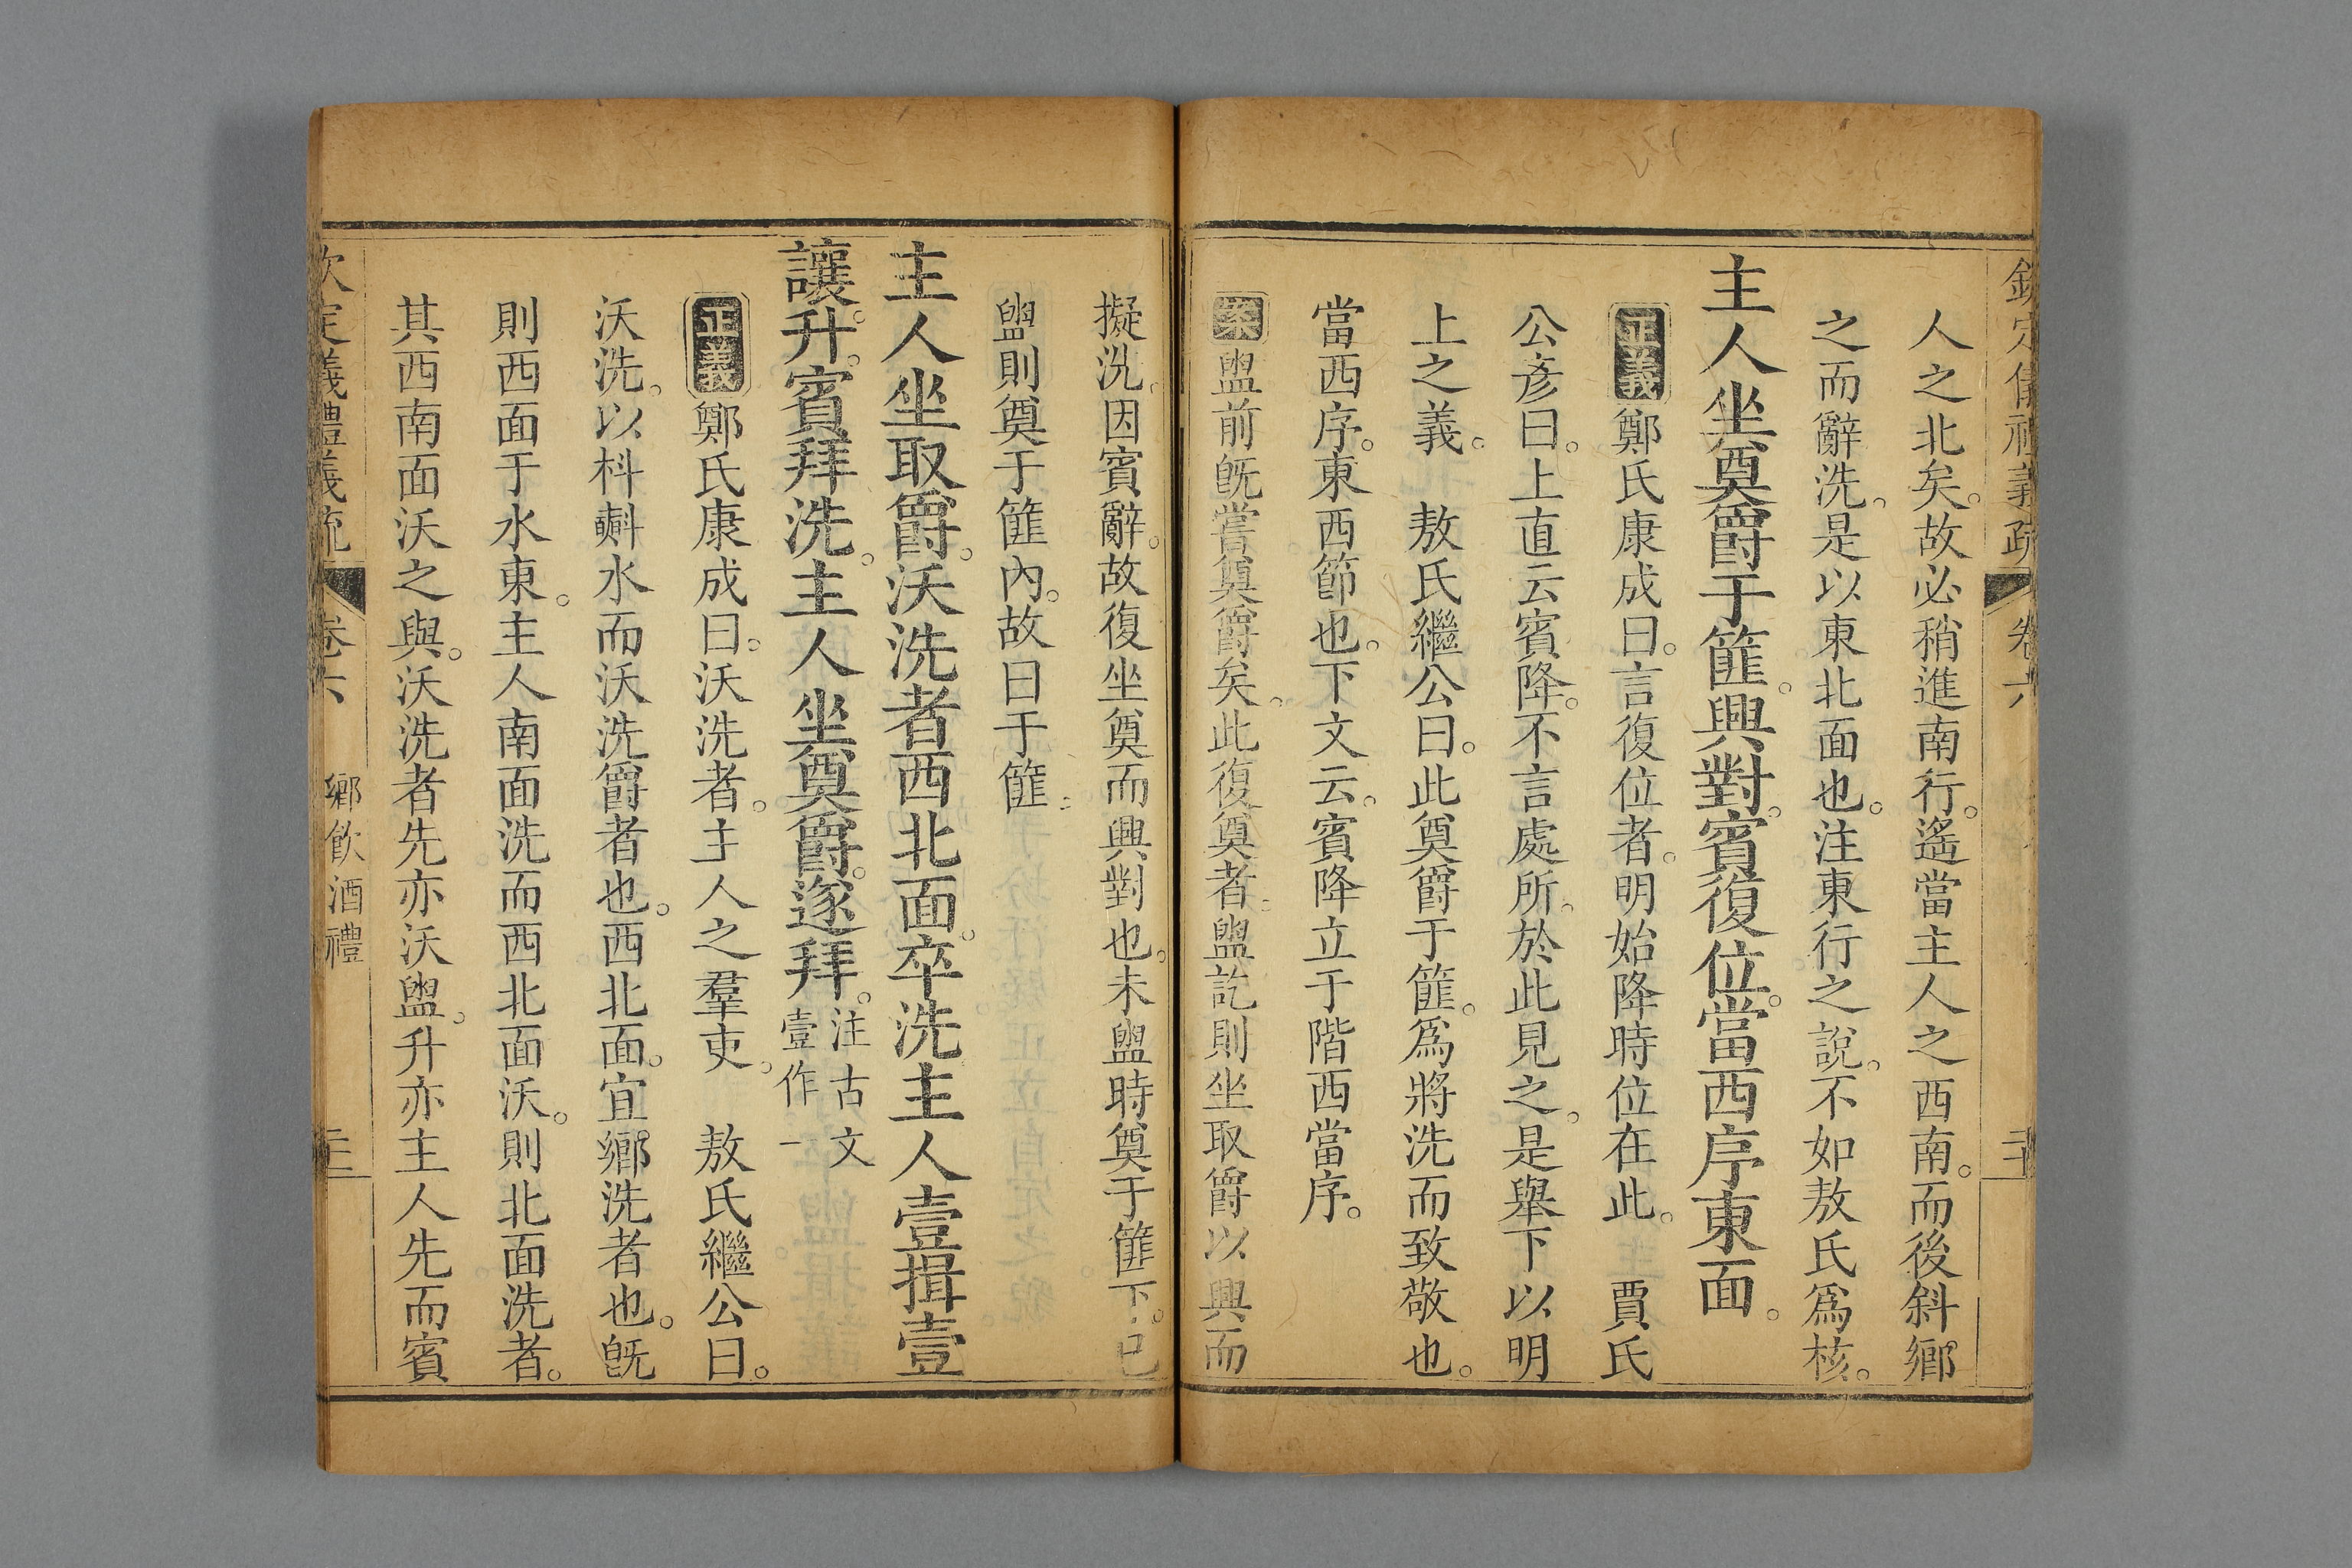 欽定儀禮義疏 卷六
人之北矣。故必稍進南行。遙當主人之西南。而後斜鄉
之而辭洗。是以東北面也。注東行之說。不如敖氏爲核。
主人坐奠爵于篚。興對。賓復位。當西序東面。
正義鄭氏康成曰。言復位者。明始降時位在此。 賈氏
公彥曰。上直云賓降。不言處所。於此見之。是舉下以明
上之義。 敖氏繼公曰。此奠爵于篚。爲將洗而致敬也。
當西序。東西節也。下文云。賓降立于階西當序。
案盥前旣嘗奠爵矣。此復奠者。盥訖則坐取爵以興而
擬洗。因賓辭。故復坐奠而興對也。未盥時奠于篚下。已
盥則奠于篚內。故曰于篚
主人坐取爵。沃洗者西北面。卒洗主人壹揖壹
讓。升。賓拜洗。主人坐奠爵。遂拜。注古文壹作一
正義鄭氏康成曰。沃洗者。主人之羣吏。 敖氏繼公曰。
沃洗。以枓㪺水而沃洗爵者也。西北面。宜鄉洗者也。旣
則西面于水東。主人南面洗而西北面沃。則北面洗者。
其西南面沃之與。沃洗者先亦沃盥。升亦主人先而賓
欽定義禮義疏 卷六 鄉飮酒禮